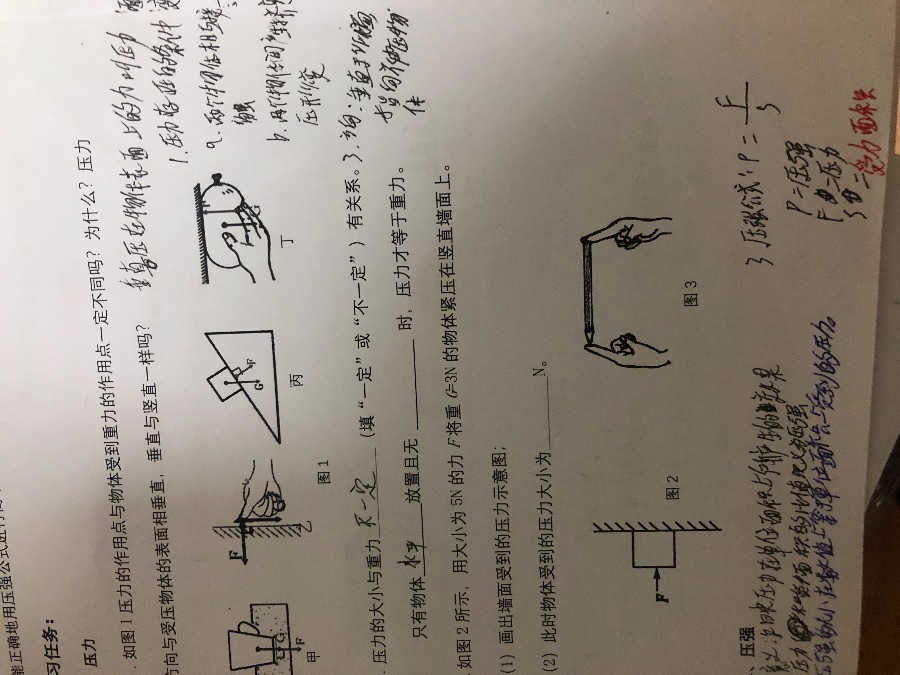 能正确地用压强公式进行
习任务：
压力
如图1压力的作用点与物体受到重力的作用点一定不同吗？为什么？压力
垂直压在物体表面上的力叫压力
方向与受压物体的表面相垂直，垂直与竖直一样吗？
1.压力存在的条件
a.两个物体相互接触
b.两个物体间发生
压形变
F
G
甲
丙
丁
图1
压力的大小与重力不一定（填“一定”或“不一定”）有关系。
3.方向：垂直于
指向被压物体
只有物体水平放置且无______时，压力才等于重力。
如图2所示，用大小为5N的力F将重G=3N的物体紧压在竖直墙面上。
(1) 画出墙面受到的压力示意图；
(2) 此时物体受到的压力大小为______N。
F
图2
图3
3 压强公式：P=F/S
P=压强
F=压力
S=受力面积
压强
压强的大小在数值上等于单位面积上受到的压力